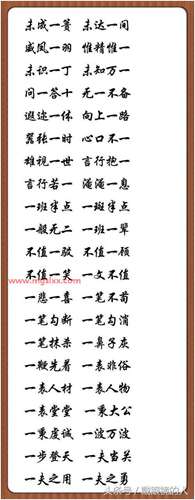 未成一篑 未达一间
威凤一羽 惟精惟一
未识一丁 未知万一
问一答十 无一不备
遐迩一体 向上一路
嚣张一时 心口不一
雄视一世 言行抱一
言行若一 淹淹一息
一班半点 一斑半点
一般无二 一班一辈
不值一驳 不值一顾
不值一笑 一文不值
www.mgslxx.com
一悲一喜 一笔不苟
一笔勾断 一笔勾消
一笔抹杀 一鼻子灰
一鞭先着 一表非俗
一表人材 一表人物
一表堂堂 一秉大公
一秉虔诚 一波万波
一步登天 一夫当关
一夫之用 一夫之勇